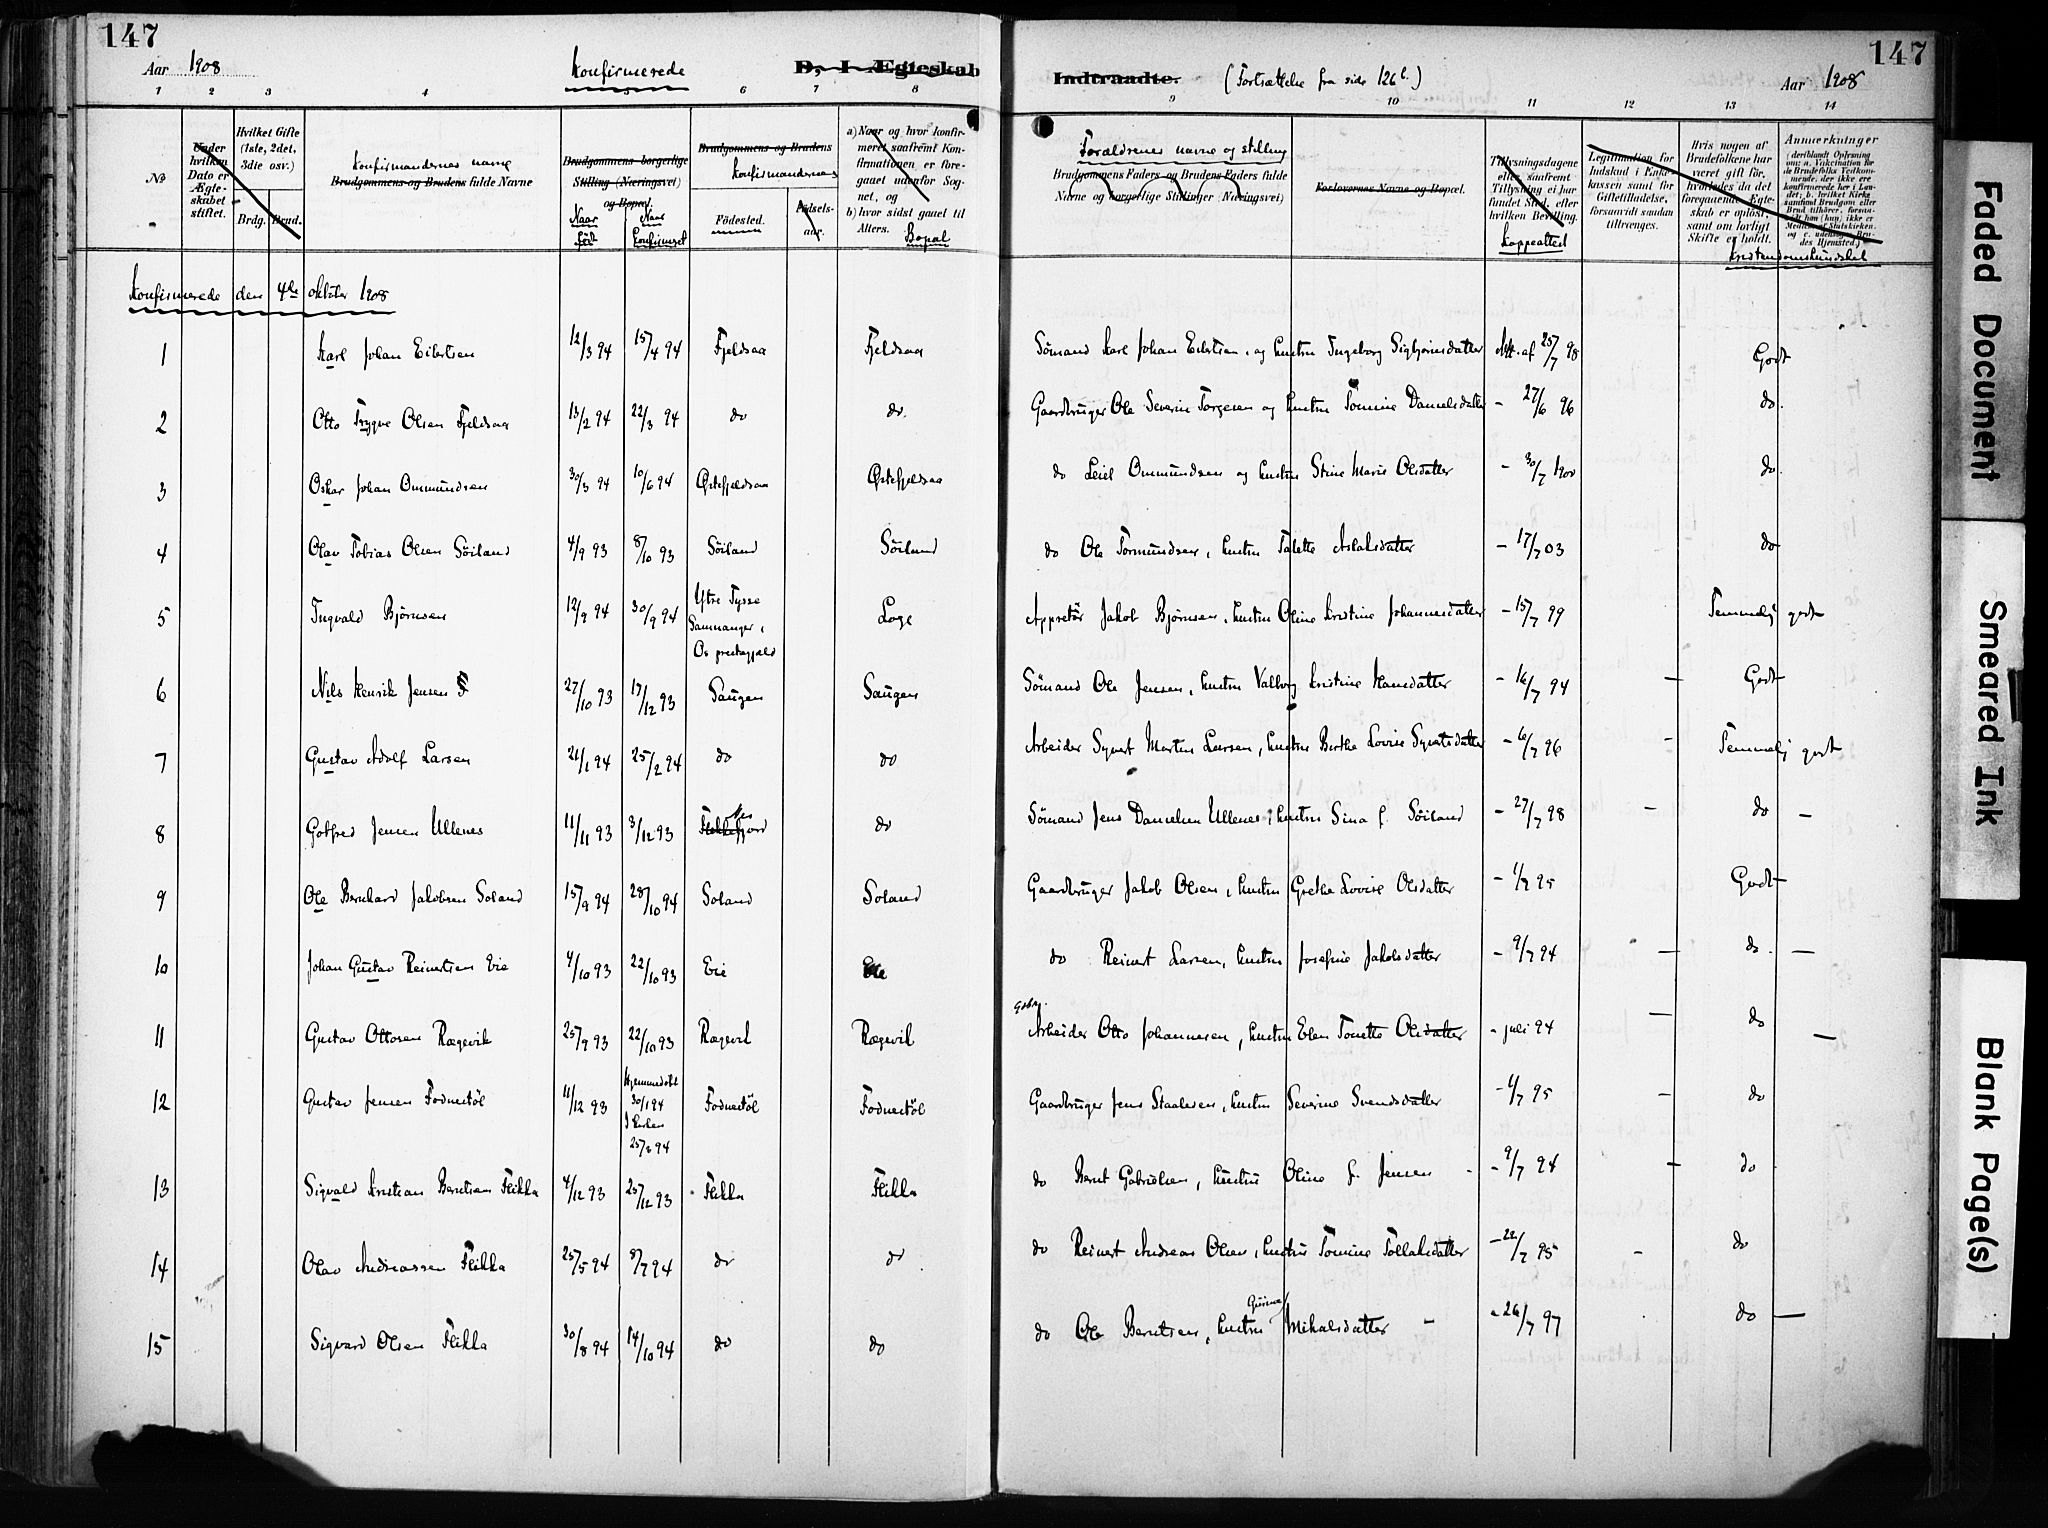 147
Aar 1908
Konfirmerede
D. I Ægteskab
Indtraadte.
(Fortsættelse fra side 126 b.)
Aar 1908
147
1 2 3 4 5 6 7 8 9 10 11 12 13 14
No
Under hvilken Dato er Ægteskabet stiftet.
Hvilket Gifte (1ste, 2det, 3die osv.)
Brdg. Brud.
Konfirmandernes navne
Brudgommens og Brudens fulde Navne
Brudgommens borgerlige Stilling (Næringsvei) og Bopæl.
Naar født
Naar konfirmeret
Brudgommens og Brudens
Konfirmandernes
Födested.
Födselsaar.
a) Naar og hvor konfirmeret saafremt Konfirmationen er foregaaet udenfor Sognet, og
b) hvor sidst gaaet til Alters.
Bopæl
Forældrenes navne og stilling
Brudgommens Faders og Brudens Faders fulde Navne og borgerlige Stillinger (Næringsvei)
Forlovernes Navne og Bopæl.
Tillysningsdagene eller, saafremt Tillysning ei har fundet Sted, efter hvilken Bevilling.
Koppeattest
Legitimation for Indskud i Enkekassen samt for Giftetilladelse, forsaavidt saadan tiltrænges.
Hvis nogen af Brudefolkene har været gift før, hvorledes da det foregaaende Ægteskab er opløst, samt om lovligt Skifte er holdt.
Anmærkninger
(deriblandt Oplysning om: a. Vakcination for de Brudefolks Vedkommende, der ikke ere konfirmerede her i Landet; b. hvilket Kirkesamfund Brudgom eller Brud tilhører, forsaavidt han (hun) ikke er Medlem af Statskirken, og c. udensogns Brudes Hjemsted.)
Kristendomskundskab
Konfirmerede den 4de oktober 1908
1 Karl Johan Eilertsen 12/3 94 15/4 94 Fjeldsaa Fjeldsaa Sömand Karl Johan Eilertsen, og hustru Ingeborg Sigbjörnsdatter Att. af 25/7 98 Godt
2 Otto Trygve Olsen Fjeldsaa 13/2 94 22/3 94 do do. Gaardbruger Ole Severin Torgesen og hustru Tomine Danielsdatter - 27/6 96 do.
3 Oskar Johan Ommundsen 30/3 94 10/6 94 Østefjeldsaa Østefjeldsaa do Leiel Ommundsen og hustru Stine Marie Olsdatter - 30/7 1900 do.
4 Olav Tobias Olsen Söiland 4/9 93 8/10 93 Söiland Söiland do Ole Tormundsen, hustru Talette Aslaksdatter - 17/7 03 do
5 Ingvald Bjørnsen 12/9 94 30/9 94 Ytre Tysse Samnanger, Os prestegjæld Loge Appretör Jakob Bjørnsen, hustru Oline Kristine Johannesdatter - 15/7 99 Temmelig godt
6 Nils Henrik Jensen 27/10 93 17/12 93 Saugen Saugen Sömand Ole Jensen, hustru Valborg Kristine Hansdatter - 16/7 94 - Godt
7 Gustav Adolf Larsen 21/1 94 25/2 94 do do Arbeider Syvert Martin Larsen, hustru Berthe Lovise Syvertsdatter - 6/7 96 - Temmelig godt
8 Gotfred Jensen Ullenes 11/11 93 3/12 93 do Sömand Jens Danielsen Ullenes, hustru Sina f. Söiland - 27/7 98 - do -
9 Ole Bernhard Jakobsen Soland 15/9 94 28/10 94 Soland Soland Gaardbruger Jakob Olsen, hustru Grethe Lovise Olsdatter - 1/7 95 Godt
10 Johan Gustav Reinertsen Eie 4/10 93 22/10 93 Eie Eie do Reinert Larsen, hustru Josefine Jakobsdatter - 9/7 94 - do. -
11 Gustav Ottosen Rægevik 25/9 93 22/10 93 Rægevik Rægevik Gdbr. Arbeider Otto Johannesen, hustru Elen Tonette Olsdatter - juli 94 - do -
12 Gustav Jensen Fodnestöl 11/12 93 Hjemmedöbt 30/1 94 I kirken 25/2 94 Fodnestöl Fodnestöl Gaardbruger Jens Staalesen, hustru Severine Svendsdatter - 4/7 95 - do
13 Sigvald Kristian Berntsen Flikka 4/12 93 25/12 93 Flikka Flikka do Bernt Gabrielsen, hustru Oline f. Jensen - 9/7 94 - do
14 Olav Andreassen Flikka 25/5 94 8/7 94 do do do Reinert Andreas Olsen, hustru Tomine Tollaksdatter - 22/7 95 - do
15 Sigvard Olsen Flikka 30/8 94 14/10 94 do do do Ole Berntsen, hustru Gurine Mikalsdatter - 26/7 97 do -
Faded Document
Smeared Ink
Blank Page(s)